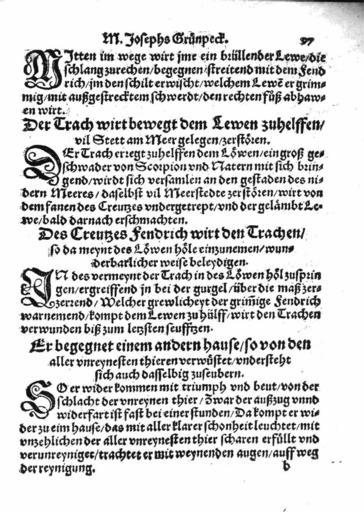 M. Josephs Grünpeck. 97
MItten im wege wirt jme ein brüllender Lewe/die
schlang zurechen/begegnen/streitend mit dem Fend
rich/jm den schilt erwischt/welchem Lewē er grim-
mig/mit außgestrecktem schwerdt/den rechten fůß abhaw-
en wirt.
Der Trach wirt bewegt dem Lewen zuhelffen/
vil Stett am Meer gelegen/zerstören.
DEr Trach erregt zuhelffen dem Löwen/ein groß ge-
schwader von Scorpion vnd Natern mit sich brin-
gend/wirdt sich versamlen an den gestaden des ni-
dern Meeres/daselbst vil Meerstedte zerstören/wirt von
dem fanen des Creutzes vndergetrept/vnd der gelämbt Le-
we/bald darnach erschmachten.
Des Creutzes Fendrich wirt den Trachen/
so da meynt des Löwen höle einzunemen/wun-
derbarlicher weise beleydigen.
IN des vermeynt der Trach in des Löwen höl zusprin
gen/ergreiffend jn bei der gurgel/über die maß zer-
zerrend/Welcher grewlicheyt der grimige Fendrich
warnemend/kompt dem Lewen zu hülff/wirt den Trachen
verwunden biß zum letzsten seufftzen.
Er begegnet einem andern hause/so von den
aller vnreynesten thieren verwüstet/vndersteht
sich auch dasselbig zuseubern.
SO er wider kommen mit triumph vnd beut/von der
schlacht der vnreynen thier/Zwar der außzug vnnd
widerfart ist fast bei einer stunden/Da kompt er wi-
der zu eim hause/das mit aller klarer schonheit leuchtet/mit
vnzehlichen der aller vnreynesten thier scharen erfüllt vnd
verunreyniget/trachtet er mit weynenden augen/auff weg
der reynigung. b